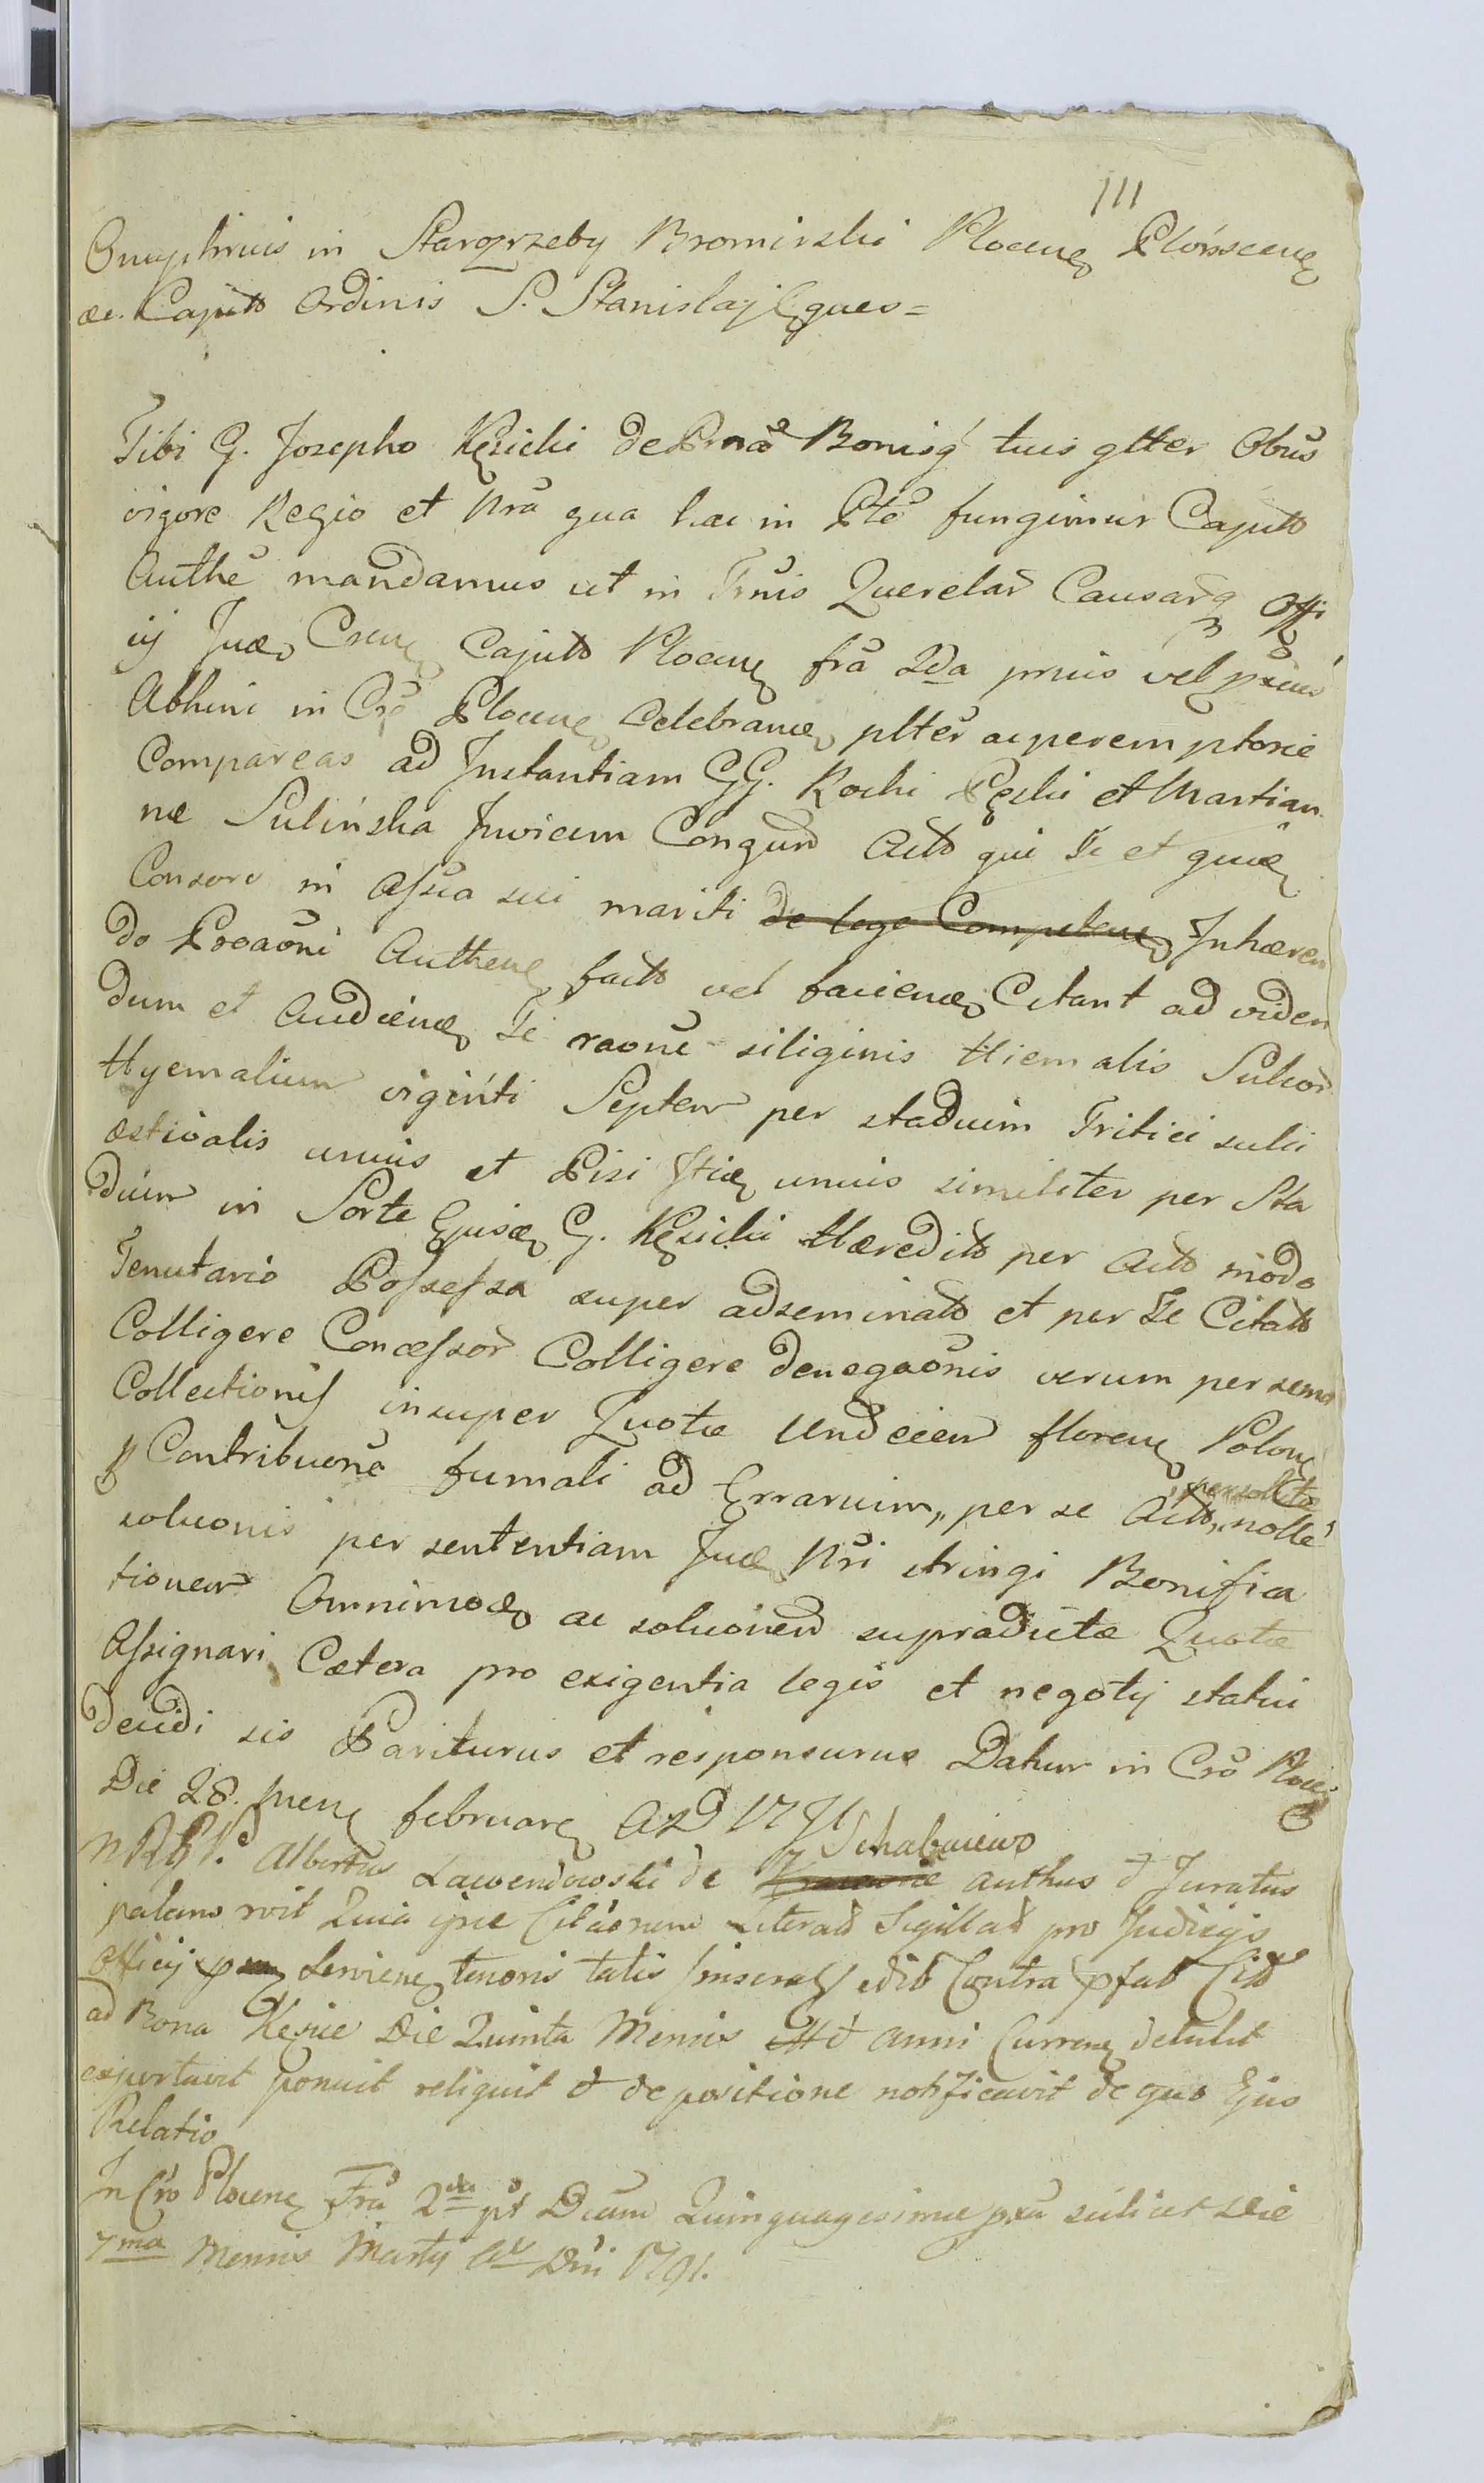 111
Onuphrius in Starozrzeby Bromirski Plocen Płonscen
ac Capit Ordinis S. Stanislaj Eques =
Tibi G. Josepho Kęsicki de Prna Bonisq tuis glter Obus
vigore Regio et Nra qua hac in Pte fungimur Capit
Authe mandamus ut in Trnis Querelar Causarq Offi
ij Jud Cren Capit Plocen fra 2da prius vel
Abhinc in Cro Plocen Celebran plter ac peremptorie
Compareas ad Instantiam GG. Rochi Pęski et Martian
næ Sulińska Invicem Congum Acto qui Te et quæ
Consors in Assia sui mariti de lege Competen Inhæren
do Proaoni Authen fact vel facien Citant ad viden
dum et Audien Te raone siliginis Hiemalis Sulcor
Hyemalium viginti Septem per stadium Tritici sulci
æstivalis unius et Pisi unius similiter per Sta
dium in Sorte Ejusd G. Kęsicki Hæredit per Act modo
Tenutario Possessa super adseminat et per Te Citat
Colligere Concessor Colligere denegaonis verum per semet
Collectionis insuper Quotæ Undecem floren Polon
p Contribuone fumali ad Errarium,, per se Act,, persolutæ nolle
soluonis per sententiam Jud Nri stringi Bonifica
tionem Omnimod ac soluonem supradictæ Quotæ
Assignari, Cætera pro exigentia legis et negotij statui
decidi sis Pariturus et responsurus Datum in Cro Plocen
Die 28. Men februar A D 1791
Albertus Lawendowski de Kracovie Schabaiewo authus et Juratus
palam rvit Quia ipse Citaonem Literat Sigillat pro Judicijs
Officij Servien tenoris talis edit Contra pfat Cit
ad Bona Kęsice Die Quinta Mensis et anni Curren detulit
exportavit ponuit reliquit et de positione notificavit de quo Ejus
Relatio
In Cro Plocen Fra 2da pt Dcam Quinquagesimæ pxa scilicet Die
7ma Mensis Martij Ao Dni 1791.